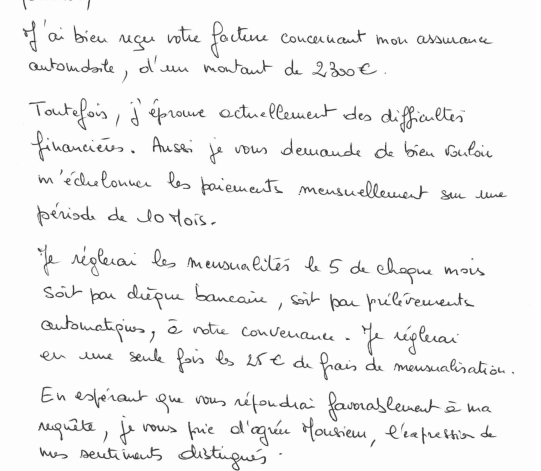 J'ai bien reçu votre facture concernant mon assurance
automobile, d'un montant de 2300€.
Toutefois, j'éprouve actuellement des difficultés
financières. Aussi je vous demande de bien vouloir
m'échelonner les paiements mensuellement sur une
période de 10 Mois.
Je réglerai les mensualités le 5 de chaque mois
soit par chèque bancaire, soit par prélèvements
automatiques, à votre convenance. Je réglerai
en une seule fois les 25€ de frais de mensualisation.
En espérant que vous répondrai favorablement à ma
requête, je vous prie d'agréer Monsieur, l'expression de
mes sentiments distingués.